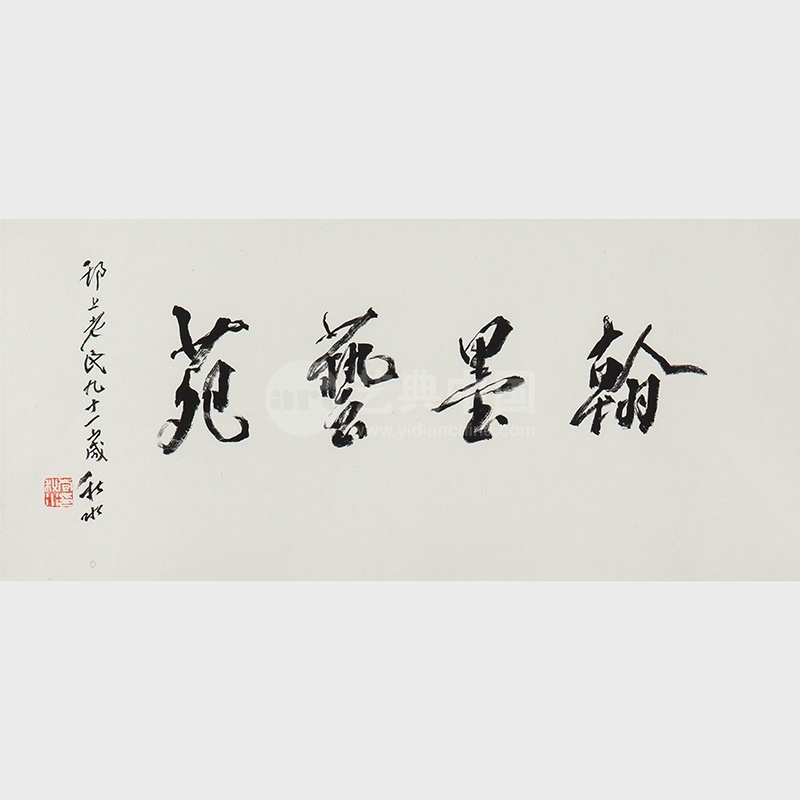 翰墨藝苑
邗上老民九十一歲 秋水
艺典中国
www.yidianchina.com